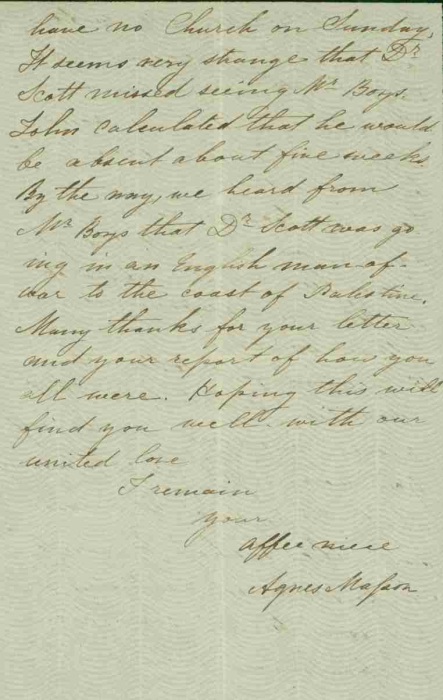 have no Church on Sunday.
It seems very strange that Dr
Scott missed seeing Mr Boys.
John calculated that he would
be absent about five weeks
By the way, we heard from
Mr Boys that Dr Scott was go
ing in an English man-of-
war to the coast of Palestine.
Many thanks for your letter
and your report of how you
all were. Hoping this will
find you well. with our
united love
I remain
your
affee niece
Agnes Maſson